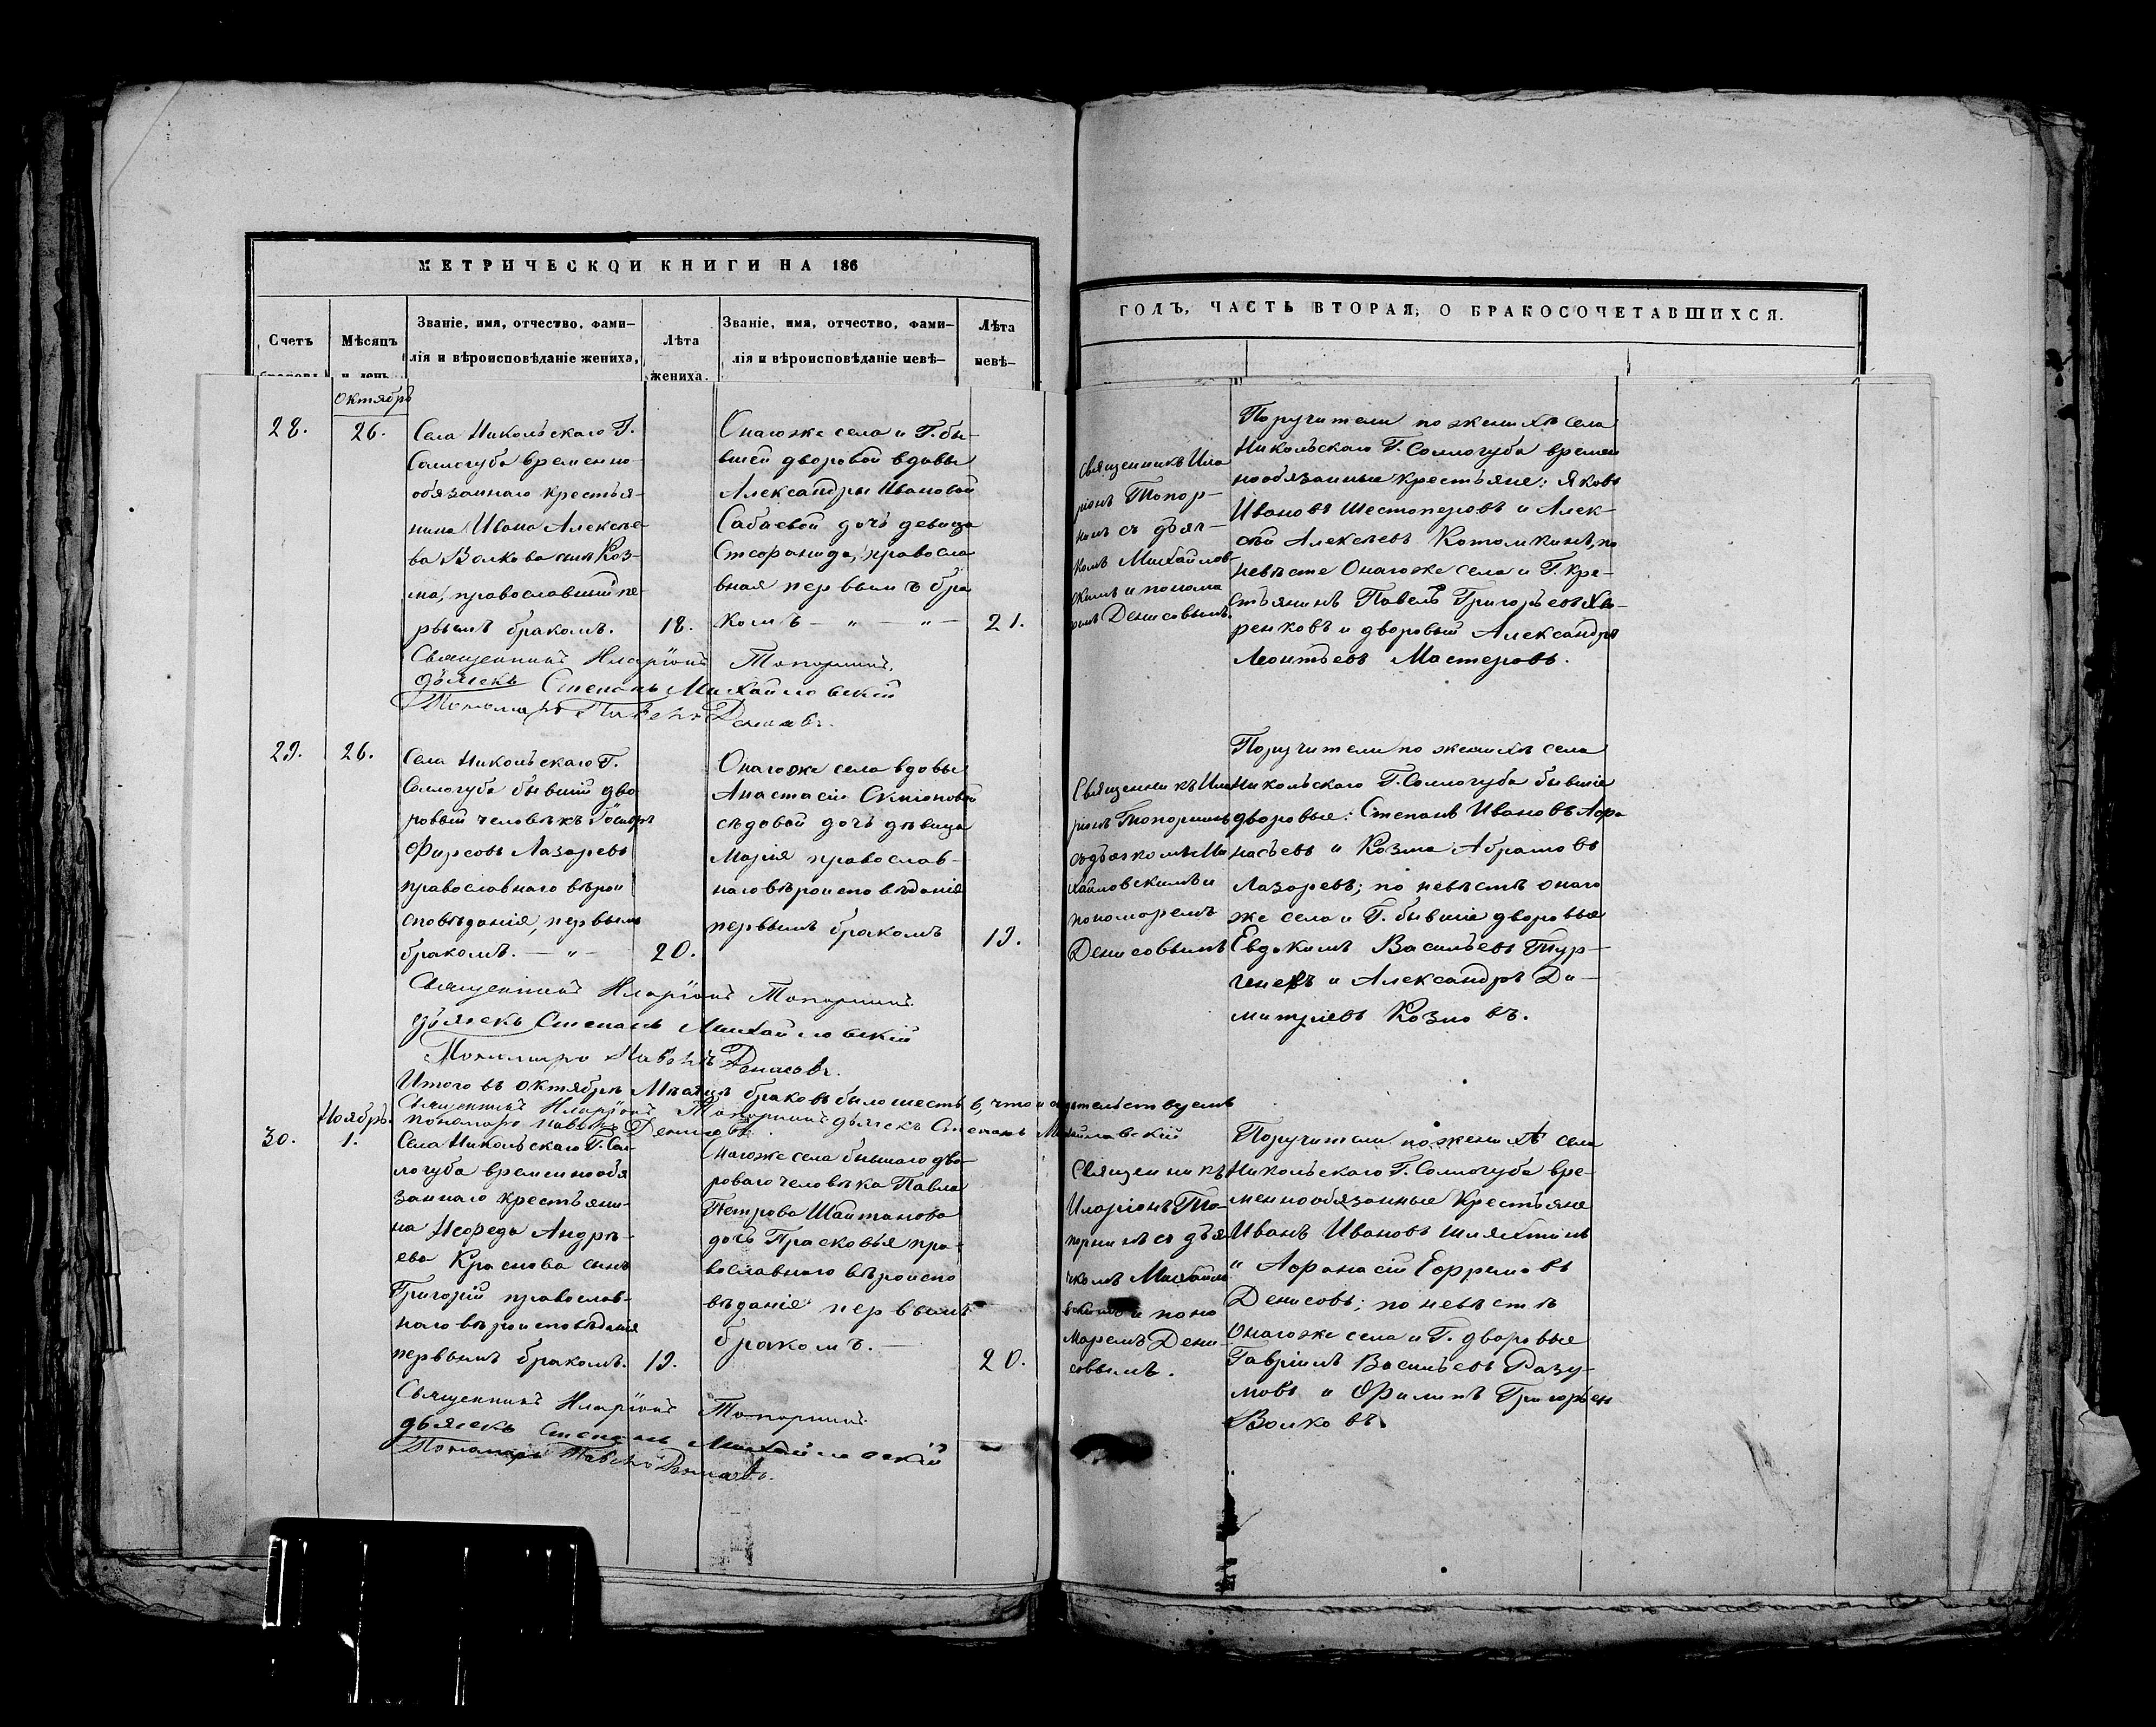 МЕТРИЧЕСКОЙ КНИГИ НА 186
Счетъ
Мѣсяцъ
Званіе, имя, отчество, фами-
лія и вѣроисповѣданіе жениха.
Лѣта
жениха.
Званіе, имя, отчество, фами-
лія и вѣроисповѣданіе невѣ-
Лѣта
невѣ-
ГОДЪ, ЧАСТЬ ВТОРАЯ, О БРАКОСОЧЕТАВШИХСЯ.
Октябрь
28.
26.
Села Никольскаго Г.
Соллогуба временно-
обязаннаго крестья-
нина Ивана Алексѣе-
ва Волкова сынъ Коз-
ма, православный пе-
рвымъ бракомъ.
18.
Онагоже села и Г. бы-
вшей дворовой вдовы
Александры Ивановой
Сабаевой дочь девица
православ
вная первымъ бра
комъ — „ — „ —
21.
Священникъ Ила
ріонъ Топор-
нинъ съ дьяч-
комъ Михайлов-
скимъ и понома
ремъ Денисовымъ.
Поручители по женихѣ села
Никольскаго Г. Соллогуба времен
нообязанные крестьяне: Яковъ
Ивановъ Шестоперовъ и Алек-
сѣй Алексѣевъ Котомкинъ, по
невѣсте Онагоже села и Г. кре-
стьянинъ Павелъ Григорьевъ
ренковъ и дворовый Александръ
Леонтьевъ Мастеровъ.
Священникъ Иларіонъ Топорнинъ.
дьячекъ Степанъ Михайловскій
Пономарь Павелъ Денисовъ.
29.
26.
Села Никольскаго Г.
Соллогуба бывшій дво
ровый человѣкъ
Фирсовъ Лазаревъ
православнаго вѣрои
сповѣданія, первымъ
бракомъ. — „ —
20.
Онагоже села вдовы
Анастасіи
сѣдовой дочь дѣвица
Марія православ-
наго вѣроисповѣданія
первымъ бракомъ
19.
Священникъ Ила
ріонъ Топорнинъ
съ дьячкомъ Ми
хайловскимъ и
пономаремъ
Денисовымъ
Поручители по женихѣ села
Никольскаго Г. Соллогуба бывшіе
дворовые: Степанъ Ивановъ Афа
насьевъ и Козма Абрамовъ
Лазаревъ; по невѣстѣ онаго
же села и Г. бывшіе дворовые
Евдокимъ Васильевъ Тур-
геневъ и Александръ Ди-
митріевъ Козловъ.
Священникъ Иларіонъ Топорнинъ.
дьячекъ Степанъ Михайловскій
Пономарь Павелъ Денисовъ.
Итого въ октябрѣ Мѣсяцѣ браковъ было шесть 6, что и свидѣтельствуемъ
Священникъ Иларіонъ Топорнинъ дьячекъ Степанъ Михайловскій
пономарь Павелъ Денисовъ.
Ноябрь.
30.
1.
Села Никольскаго Г. Сол-
логуба временнообя
заннаго крестьяни-
на Андрѣ-
ева Краснова сынъ
Григорій православ-
наго вѣроисповѣданія
первымъ бракомъ.
19.
Онагоже села бывшаго дво-
роваго человѣка Павла
Петрова Шайтанова
дочь Прасковья пра-
вославнаго вѣроиспо
вѣданія первымъ
бракомъ. —
20.
Священникъ
Иларіонъ То-
порнинъ съ дья
чкомъ Михайло
вскимъ и поно
маремъ Дени-
совымъ.
Поручители по женихѣ села
Никольскаго Г. Соллогуба вре-
меннообязанные Крестьяне
Иванъ Ивановъ Шляхтинъ
и Афанасій Ефремовъ
Денисовъ; по невѣстѣ
Онагоже села и Г. дворовые
Гавріилъ Васильевъ Разу-
мовъ и Филипъ Григорьев
Волковъ
Священникъ Иларіонъ Топорнинъ.
дьячекъ Степанъ Михайловскій
Пономарь Павелъ Денисовъ.